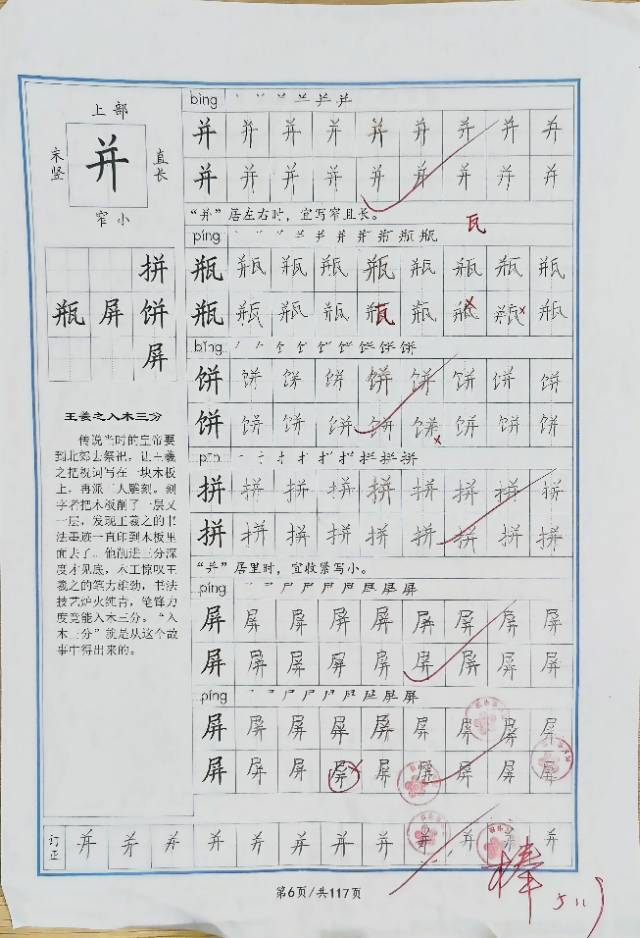 上部
末竖
直长
并
窄小
拼
瓶屏饼
屏
王羲之入木三分
传说当时的皇帝要
到北郊去祭祀，让王羲
之把祝词写在一块木板
上，再派工人雕刻。刻
字者把木板削了一层又
一层，发现王羲之的书
法墨迹一直印到木板里
面去了。他削进三分深
度才见底，木工惊叹王
羲之的笔力雄劲，书法
技艺炉火纯青，笔锋力
度竟能入木三分。“入
木三分”就是从这个故
事中得出来的。
bìng
并并并并并并并并并
并并并并并并并并并
“并”居左右时，宜写窄且长。
瓦
píng
瓶瓶瓶瓶瓶瓶瓶瓶瓶
瓶瓶瓶瓶瓦瓶瓶瓶瓶
bǐng
饼饼饼饼饼饼饼饼饼
饼饼饼饼饼饼饼饼饼
pīn
拼拼拼拼拼拼拼拼拼
拼拼拼拼拼拼拼拼拼
“并”居里时，宜收紧写小。
píng
屏屏屏屏屏屏屏屏屏
屏屏屏屏屏屏屏屏屏
píng
屏屏屏屏屏屏屏屏屏
屏屏屏屏屏屏屏屏屏
订正
并并并并并并并并并并并并
棒 5.11
第6页/共117页